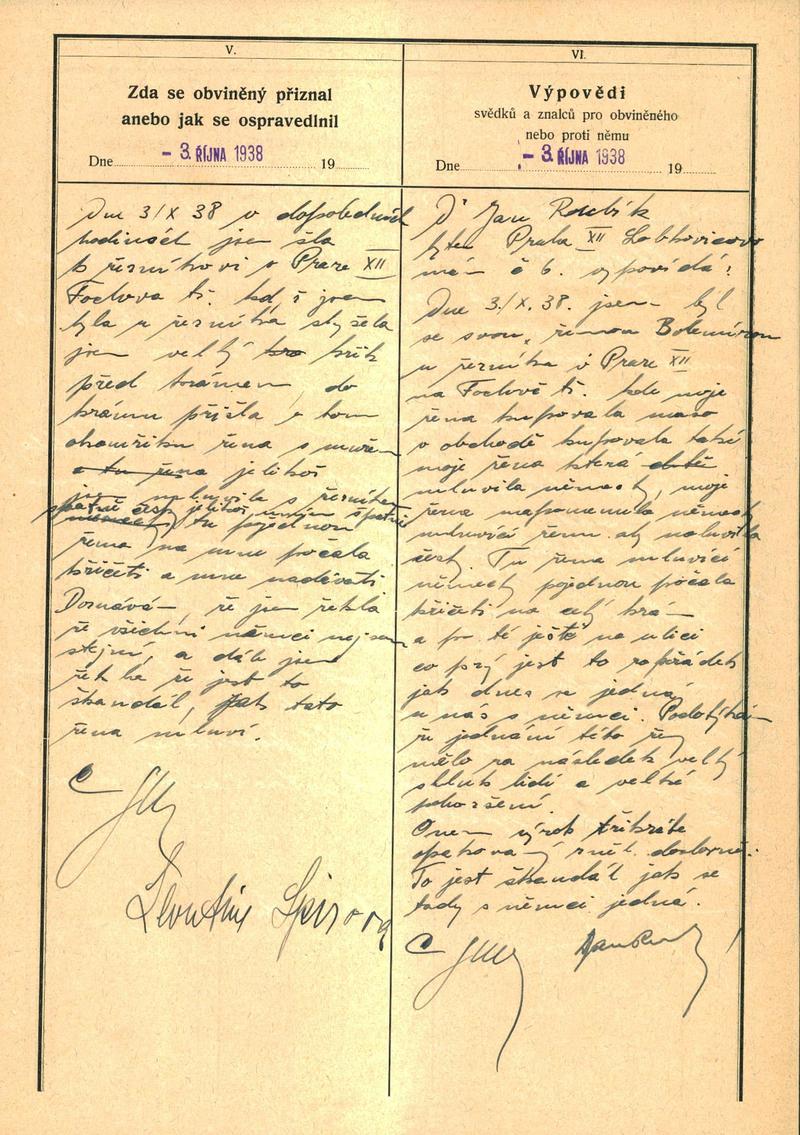 V.
Zda se obviněný přiznal
anebo jak se ospravedlnil
Dne - 3. ŘÍJNA 1938 19
Dne 3/X 38 v dopoledních
hodinách jsem šla
k řezníkovi v Praze XII
Fochova tř. když jsem
byla u řezníka slyšela
jsem velký křik
před krámem, do
krámu přišla v tom
okamžiku žena s mužem
a tu žena jelikož
jsem mluvila s řezníkem
špatně česky jelikož umím špatně
německy, tu pojednou
žena na mne počala
křičeti a mne nadávati
Doznávám, že jsem řekla
že všichni němci nejsou
stejní, a dále jsem
řekla že jest to
škandál, jak tato
žena mluví.
Leontine
VI.
Výpovědi
svědků a znalců pro obviněného
nebo proti němu
Dne - 3. ŘÍJNA 1938 19
Dr Jan
bytem Praha XII Lobkovicovo
nám č 6. vypovídá:
Dne 3./X. 38. jsem byl
se svou ženou Bohemírou
u řezníka v Praze XII
na Fochově tř. kde moje
žena kupovala maso
v obchodě kupovala také
moje žena která
mluvila německy, moje
žena napomenula německy
mluvící ženu aby mluvila
česky. Tu žena mluvící
německy pojednou počala
křičeti na celý krám
a po té ještě na ulici
co prý jest to za pořádek
jak dnes se jedná
u nás s němci. Podotýkám
že jednání této ženy
mělo za následek velký
shluk lidí a velké
pohoršení.
Onen výrok třikráte
opakovaný zněl doslovně:
To jest škandál jak se
tady s němci jedná.